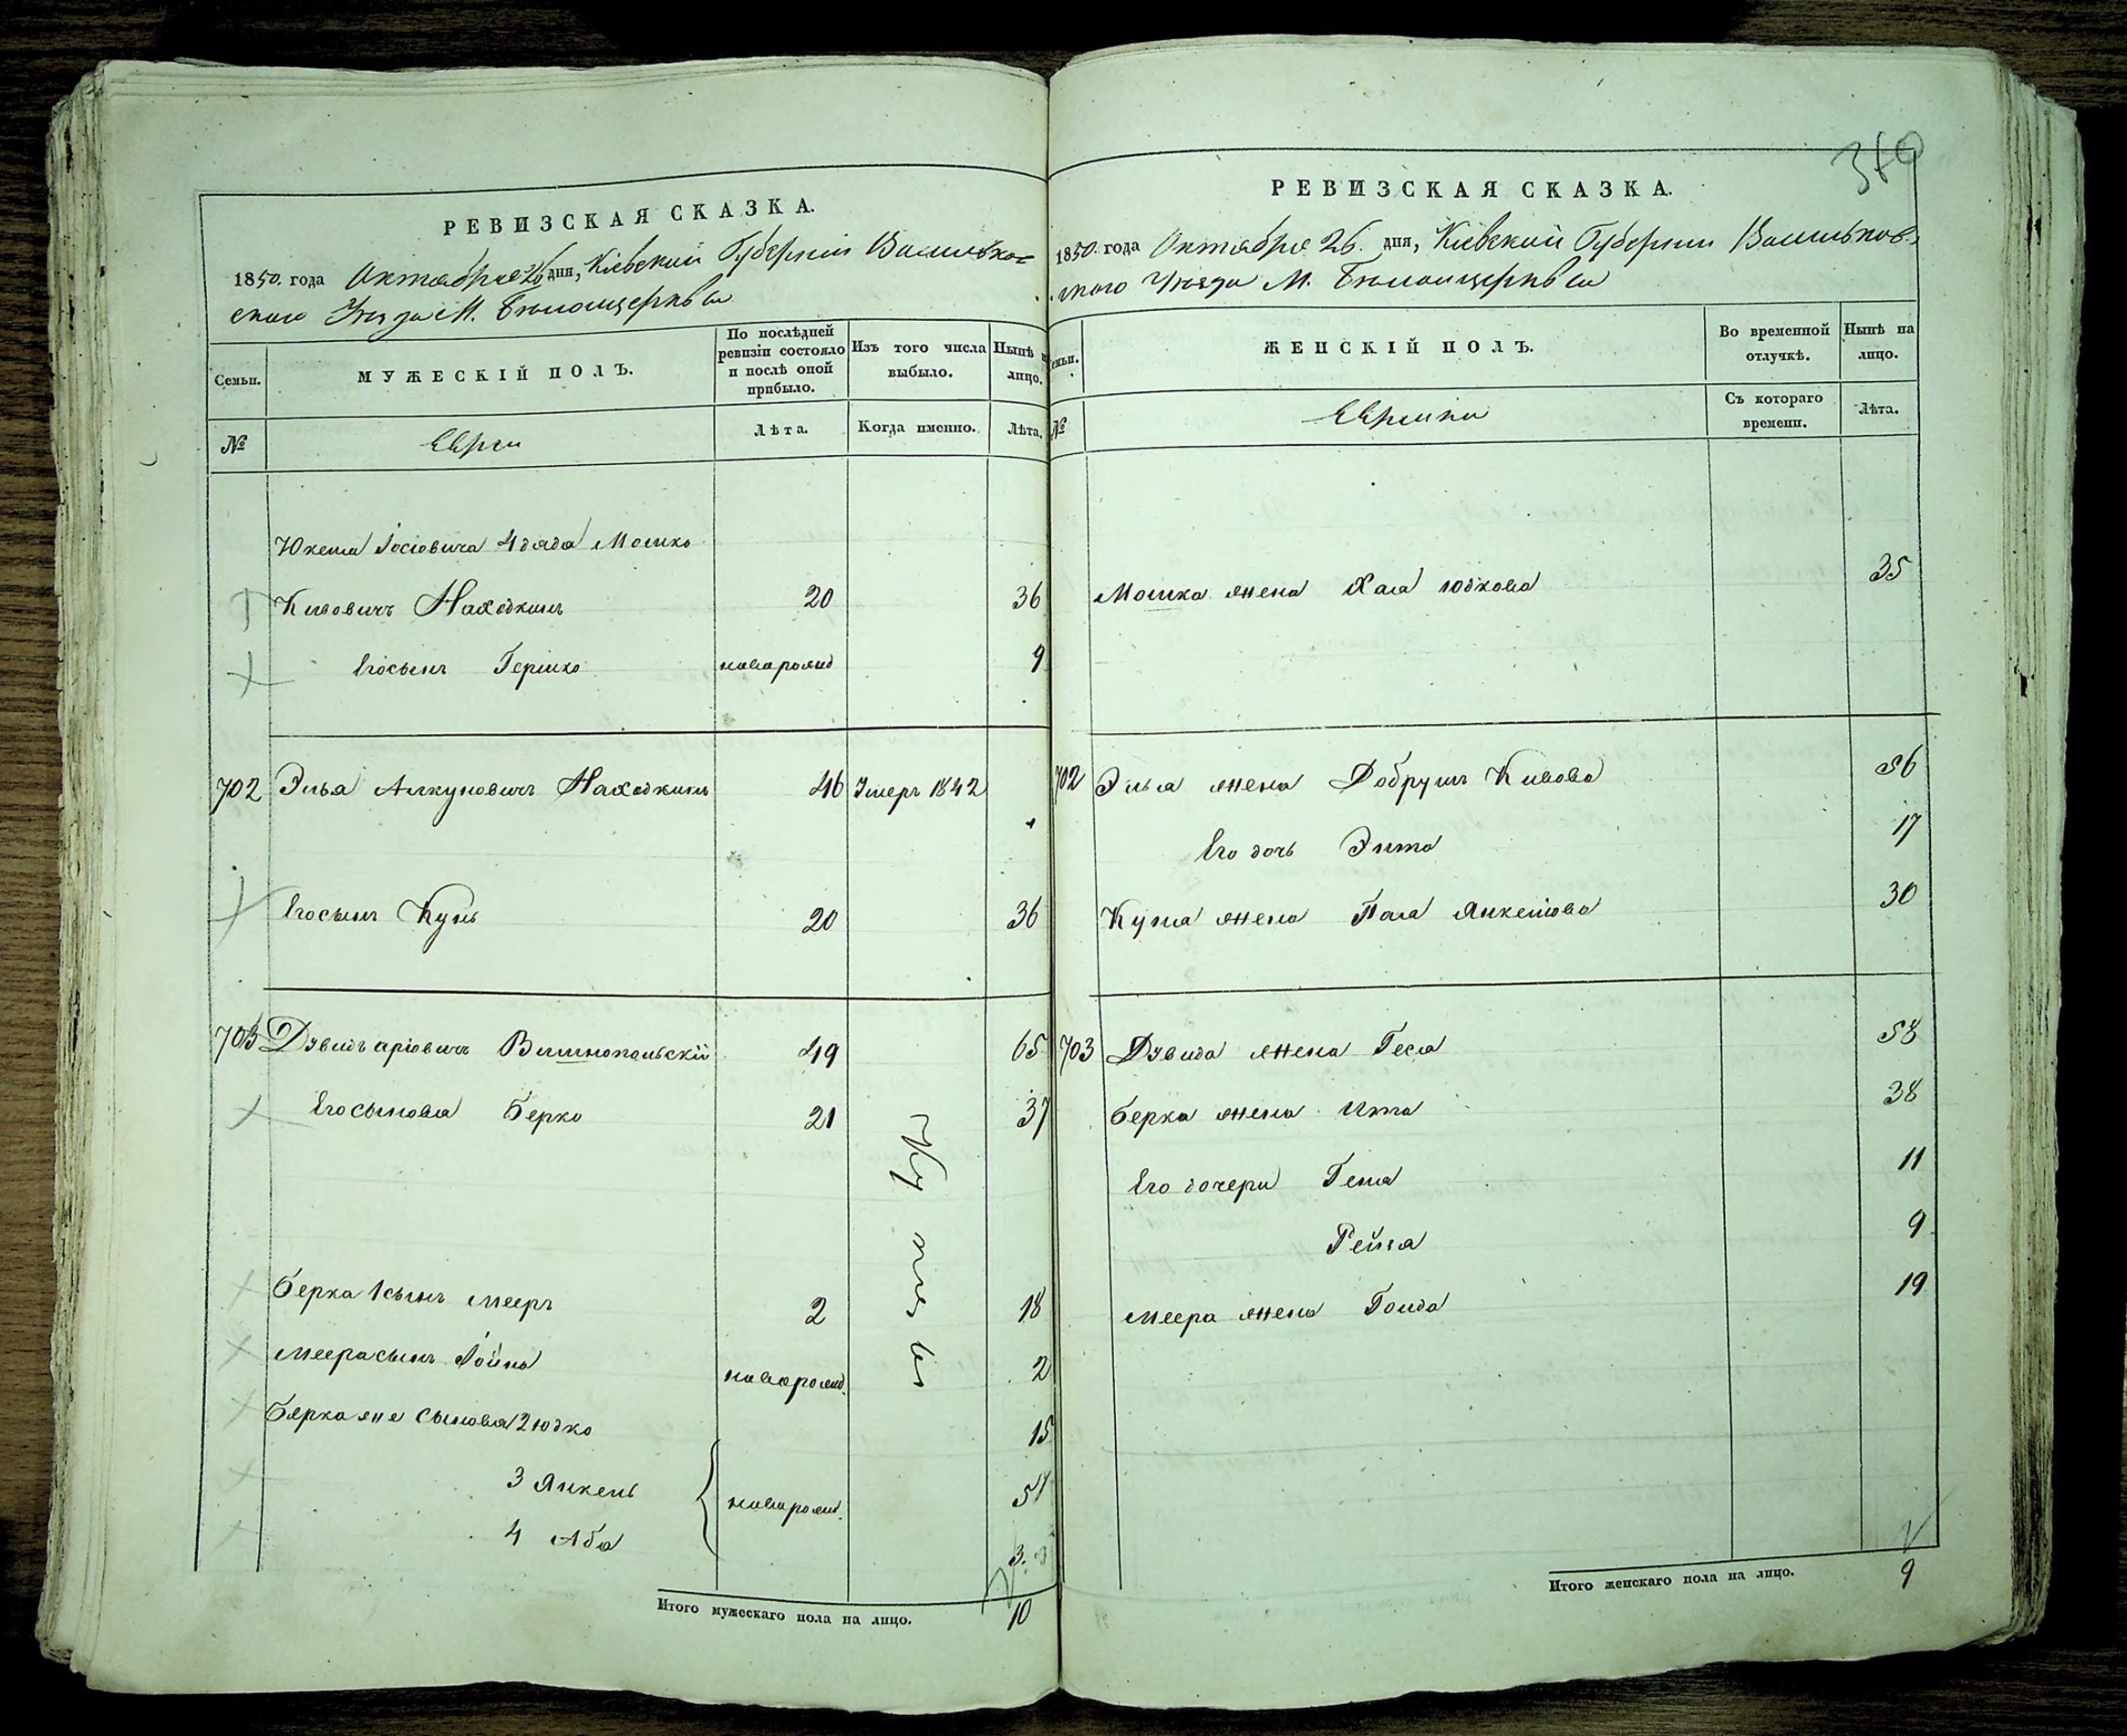 РЕВИЗСКАЯ СКАЗКА.
1850. года Октября 26 дня, Кіевской Губерніи Василько-
скаго Уезда М. Белоцерквы
Семьи.
МУЖЕСКІЙ ПОЛЪ.
По послѣдней ревизіи состояло и послѣ оной прибыло.
Изъ того числа выбыло.
Нынѣ на лицо.
№
Евреи
Лѣта.
Когда именно.
Лѣта.
Іосіовича 4 дядя Мошко
Кивовичъ Находкинъ 20 36
Его сынъ Гершко новорожд 9
702 Элья Находкинъ 46 Умеръ 1842
Его сынъ Куна 20 36
703 Дувидъ аріовичъ Вишнопольскій 49 65
Его сыновья Берко 21 37
Берка 1 сынъ Мееръ 2 18
Меера сынъ Іойна новорожд. 2
Берка же сыновья 2 Юдко 15
3 Янкель новорожд. 5
4 Аба 3.
Итого мужескаго пола на лицо. 10
РЕВИЗСКАЯ СКАЗКА.
1850. года Октября 26. дня, Кіевской Губерніи Васильков-
скаго Уезда М. Белоцерквы
Семьи.
ЖЕНСКІЙ ПОЛЪ.
Во временной отлучкѣ.
Нынѣ на лицо.
№
Еврейки
Съ котораго времени.
Лѣта.
Мошка жена Хая Юдкова 35
702 Элья жена Добрушъ Кивова 56
Его дочь Энта 17
Куна жена Пая Янкелева 30
703 Дувида жена Геся 58
Берка жена Ита 38
Его дочери Геня 11
Рейза 9
Меера жена Голда 19
Итого женскаго пола на лицо. 9